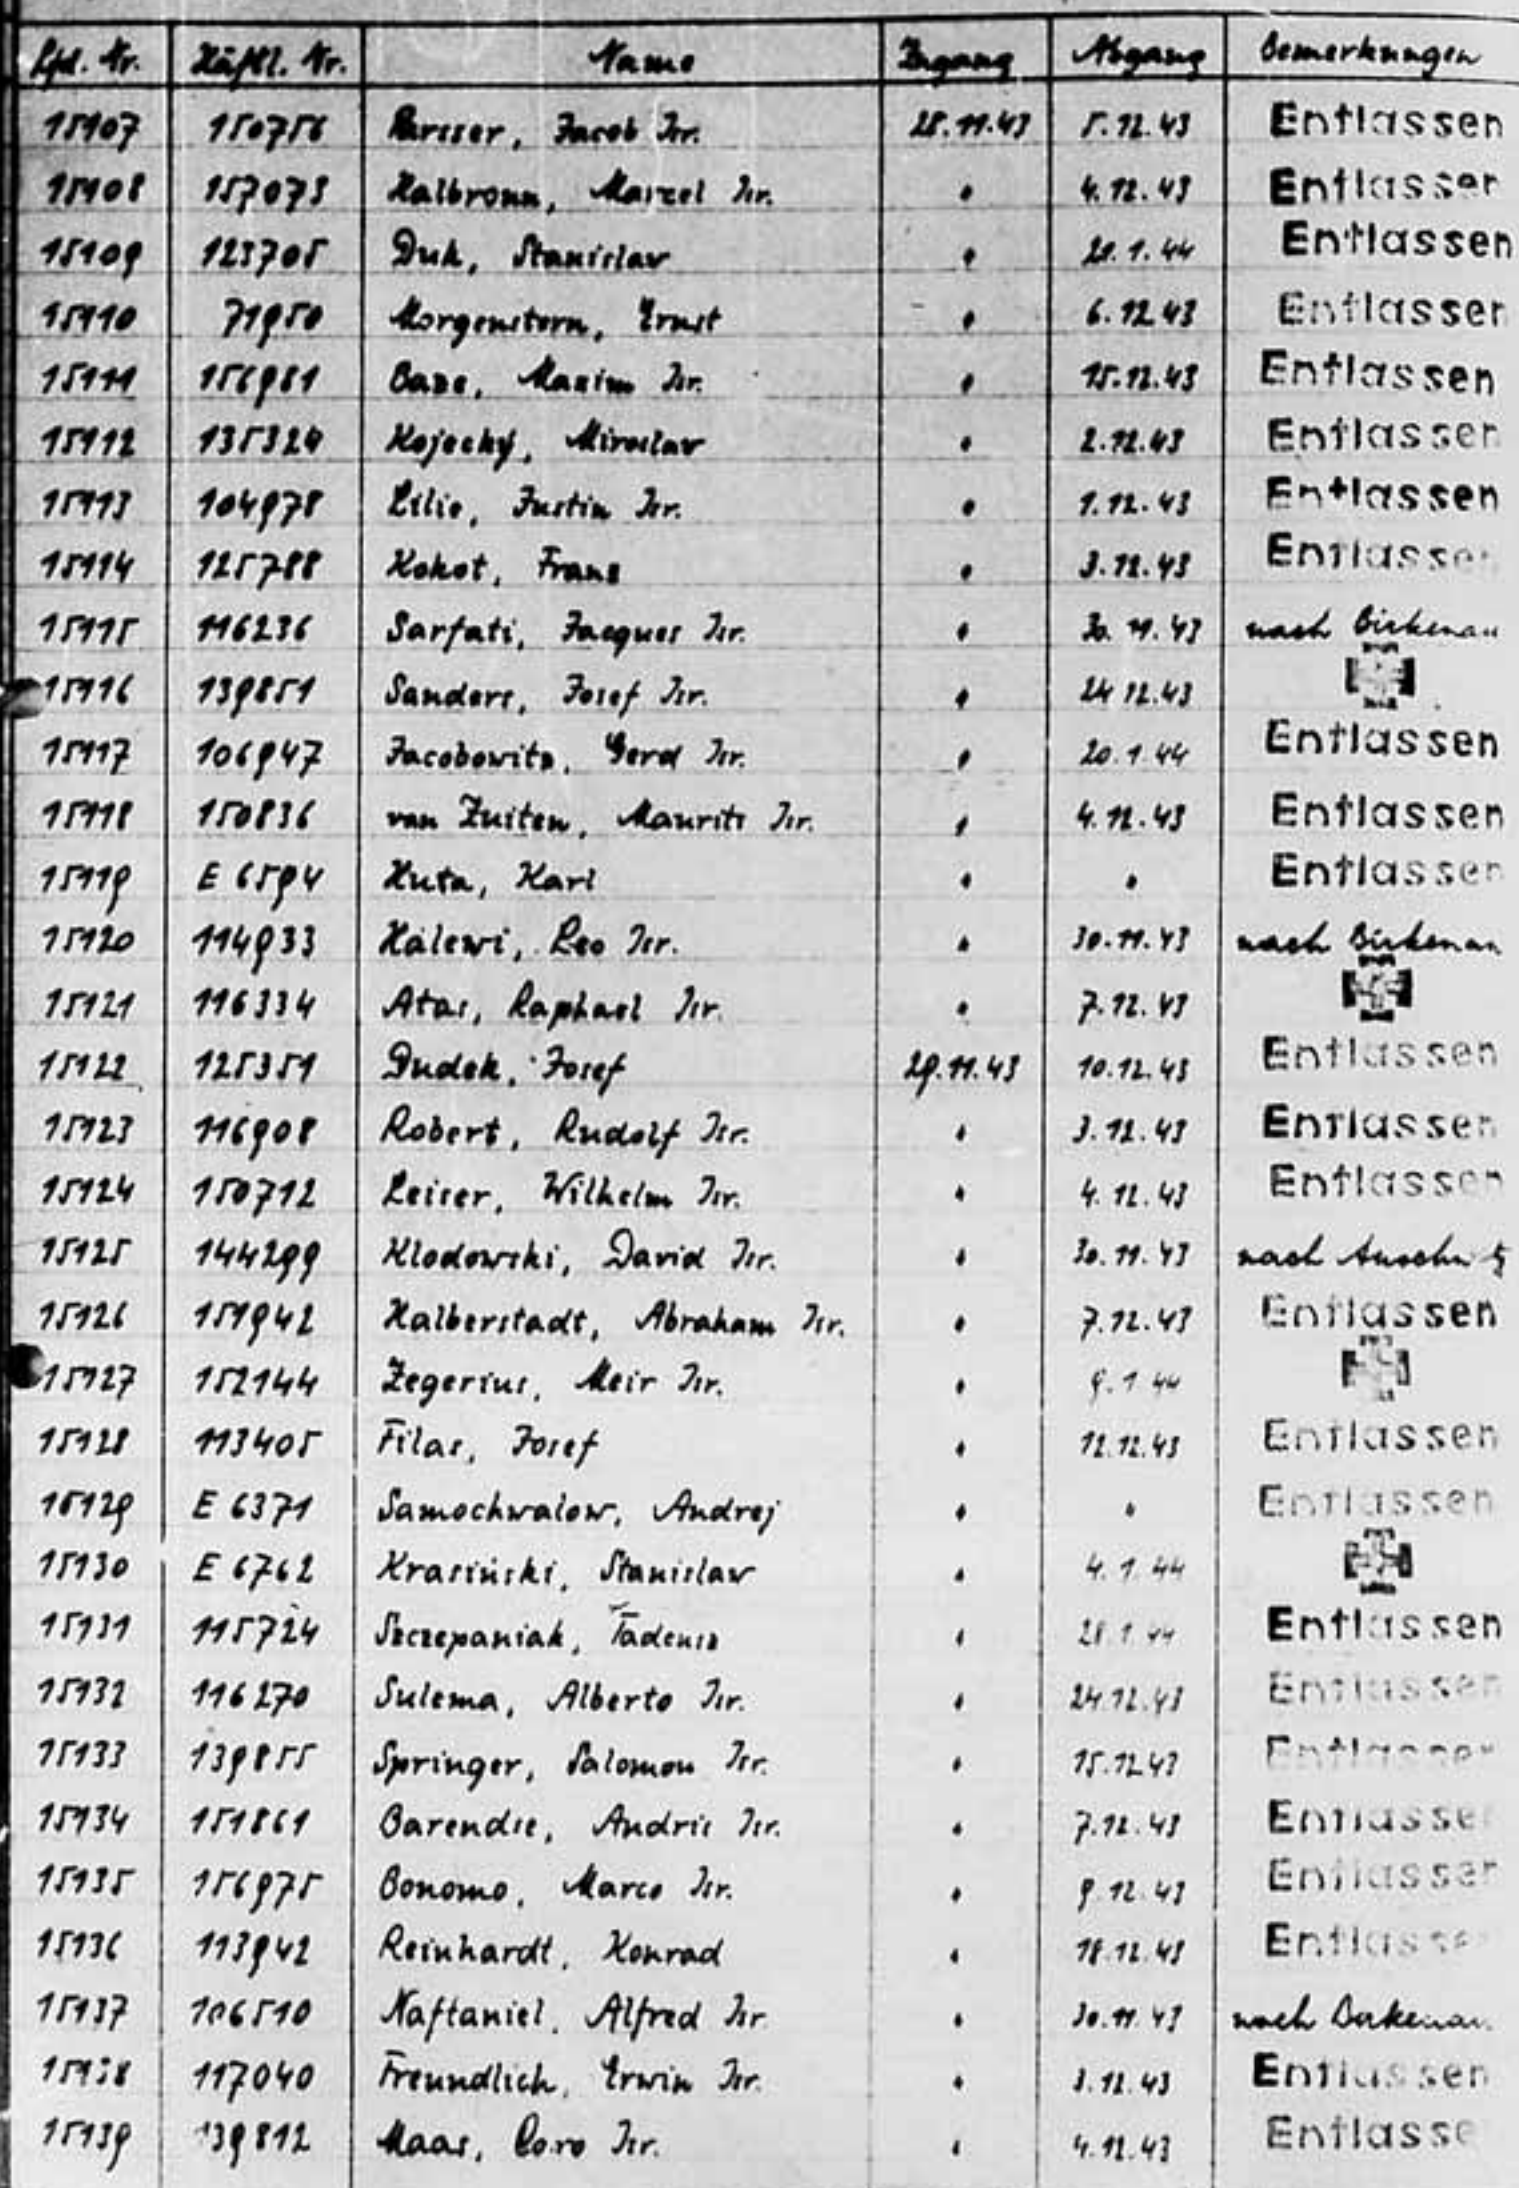 Lfd. Nr. Häftl. Nr. Name Zugang Abgang Bemerkungen
15107 150756 Jacob Isr. 28.11.43 5.12.43 Entlassen
15108 157073 Halbronn, Marcel Isr. " 4.12.43 Entlassen
15109 123705 Duk, Stanislav " 28.1.44 Entlassen
15110 71950 Morgenstern, Ernst " 6.12.43 Entlassen
15111 156981 Baze, Maxim Isr. " 15.12.43 Entlassen
15112 135324 Kojecký, Miroslav " 2.12.43 Entlassen
15113 104978 Lilie, Justin Isr. " 1.12.43 Entlassen
15114 125788 Kokot, Franz " 3.12.43 Entlassen
15115 116236 Sarfati, Jacques Isr. " 30.11.43 nach Birkenau
15116 139851 Sanders, Josef Isr. " 24.12.43
15117 106947 Jacobowitz, Gerd Isr. " 20.1.44 Entlassen
15118 150836 van Zuiten, Maurits Isr. " 4.12.43 Entlassen
15119 E 6594 Huta, Karl " " Entlassen
15120 114933 Halewi, Leo Isr. " 30.11.43 nach Birkenau
15121 116334 Atas, Raphael Isr. " 7.12.43
15122 125351 Dudek, Josef 29.11.43 10.12.43 Entlassen
15123 116908 Robert, Rudolf Isr. " 3.12.43 Entlassen
15124 150712 Leiser, Wilhelm Isr. " 4.12.43 Entlassen
15125 144299 Klodowski, David Isr. " 30.11.43 nach Auschwitz
15126 151942 Halberstadt, Abraham Isr. " 7.12.43 Entlassen
15127 152144 Zegerius, Meir Isr. " 9.1.44
15128 113405 Filas, Josef " 12.12.43 Entlassen
15129 E 6371 Samochwalow, Andrej " " Entlassen
15130 E 6762 Krasiński, Stanislaw " 4.1.44
15131 115724 Szczepaniak, Tadeusz " 28.1.44 Entlassen
15132 116270 Sulema, Alberto Isr. " 24.12.43 Entlassen
15133 139855 Springer, Salomon Isr. " 15.12.43 Entlassen
15134 151861 Barendse, Andris Isr. " 7.12.43 Entlassen
15135 156975 Bonomo, Marco Isr. " 9.12.43 Entlassen
15136 113942 Reinhardt, Konrad " 18.12.43 Entlassen
15137 106510 Naftaniel, Alfred Isr. " 30.11.43 nach Birkenau
15138 117040 Freundlich, Erwin Isr. " 3.12.43 Entlassen
15139 139812 Maas, Isr. " 4.12.43 Entlassen